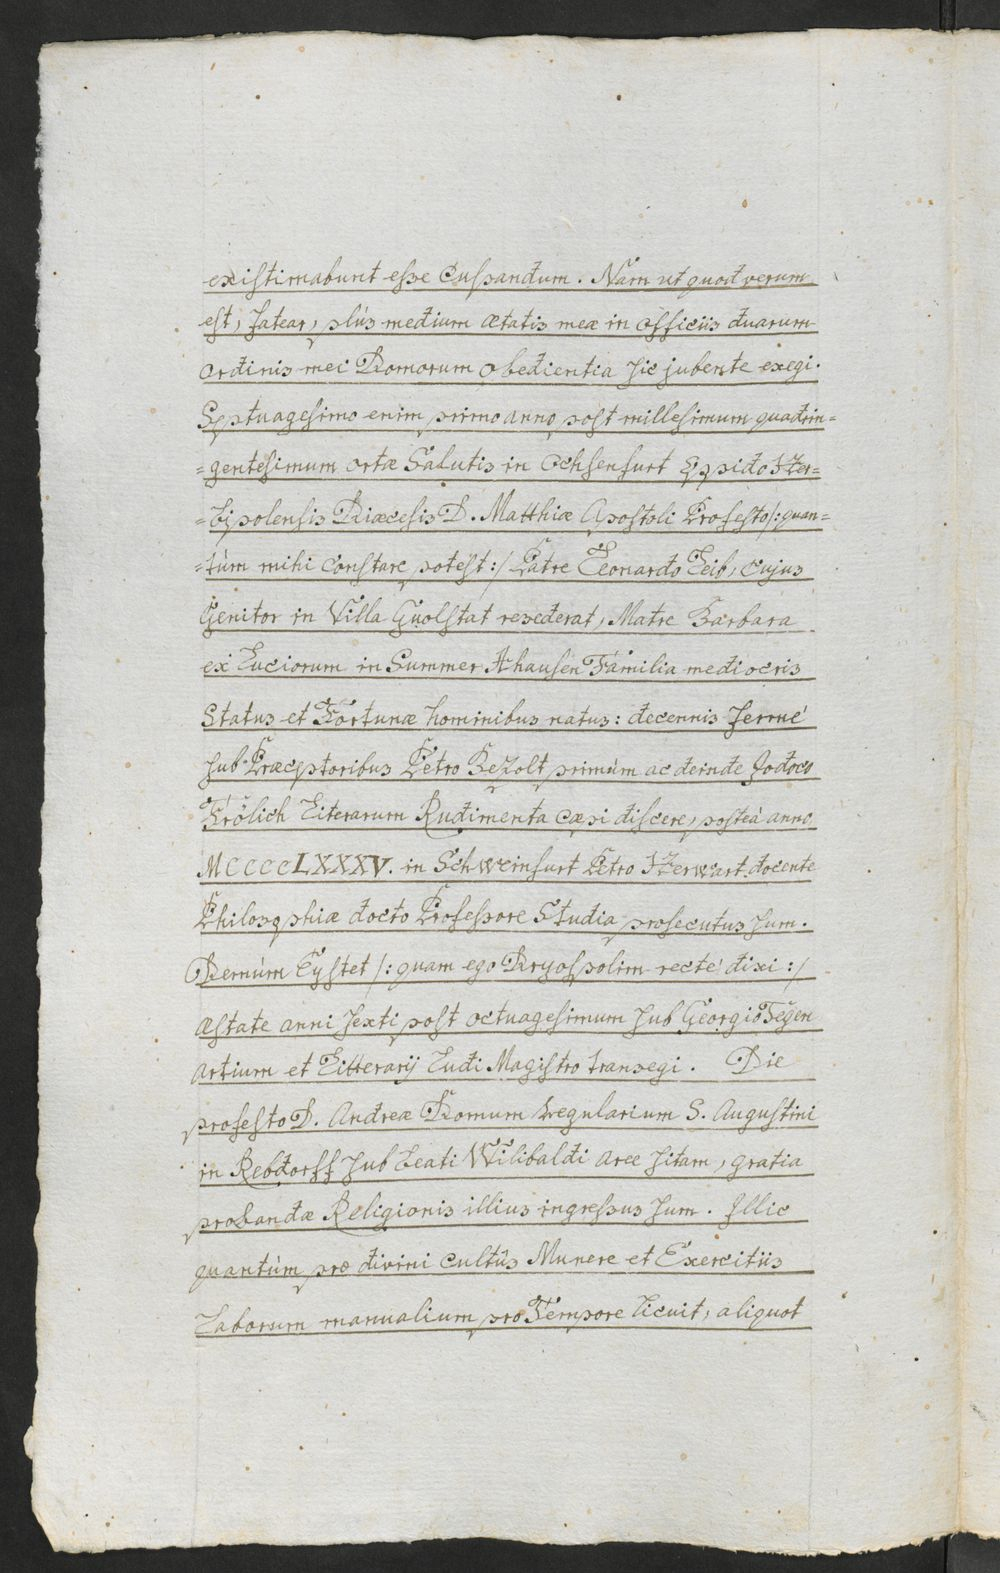 existimabunt esse Culpandum. Nam ut quod verum
est, fatear, plùs medium ætatis meæ in officiis duarum
ordinis mei Domorum obedientia sic jubente exegi.
Septuagesimo enim primo anno post millesimum quadrin=
=gentesimum ortæ Salutis in Ochsenfurt Oppido Her=
=bipolensis Diœcesis D. Matthiæ Apostoli Profesto /: quan=
=tùm mihi constare potest :/ Patre Leonardo Leib, cujus
Genitor in Villa Guolstat resederat, Matre Barbara
ex Luciorum in Summer Ahausen Familia mediocris
Status et Fortunæ hominibus natus: decennis fermè
sub Præceptoribus Petro Bezolt primùm ac deinde Jodoco
Frölich Literarum Rudimenta cæpi discere, posteà anno
MCCCCLXXXV. in Schweinfurt Petro Herwart docente
Philosophiæ docto Professore Studia prosecutus sum.
Demùm Eystet /: quam ego Dryospolim rectè dixi :/
æstate anni sexti post octuagesimum sub Georgio Tegen
artium et Litterarij Ludi Magistro transegi. Die
profesto D. Andreæ Domum Regularium S. Augustini
in Rebdorff sub beati Wilibaldi arce sitam, gratia
probandæ Religionis illius ingressus sum. Illic
quantùm præ divini cultûs Munere et Exercitiis
Laborum manualium pro Tempore licuit, aliquot